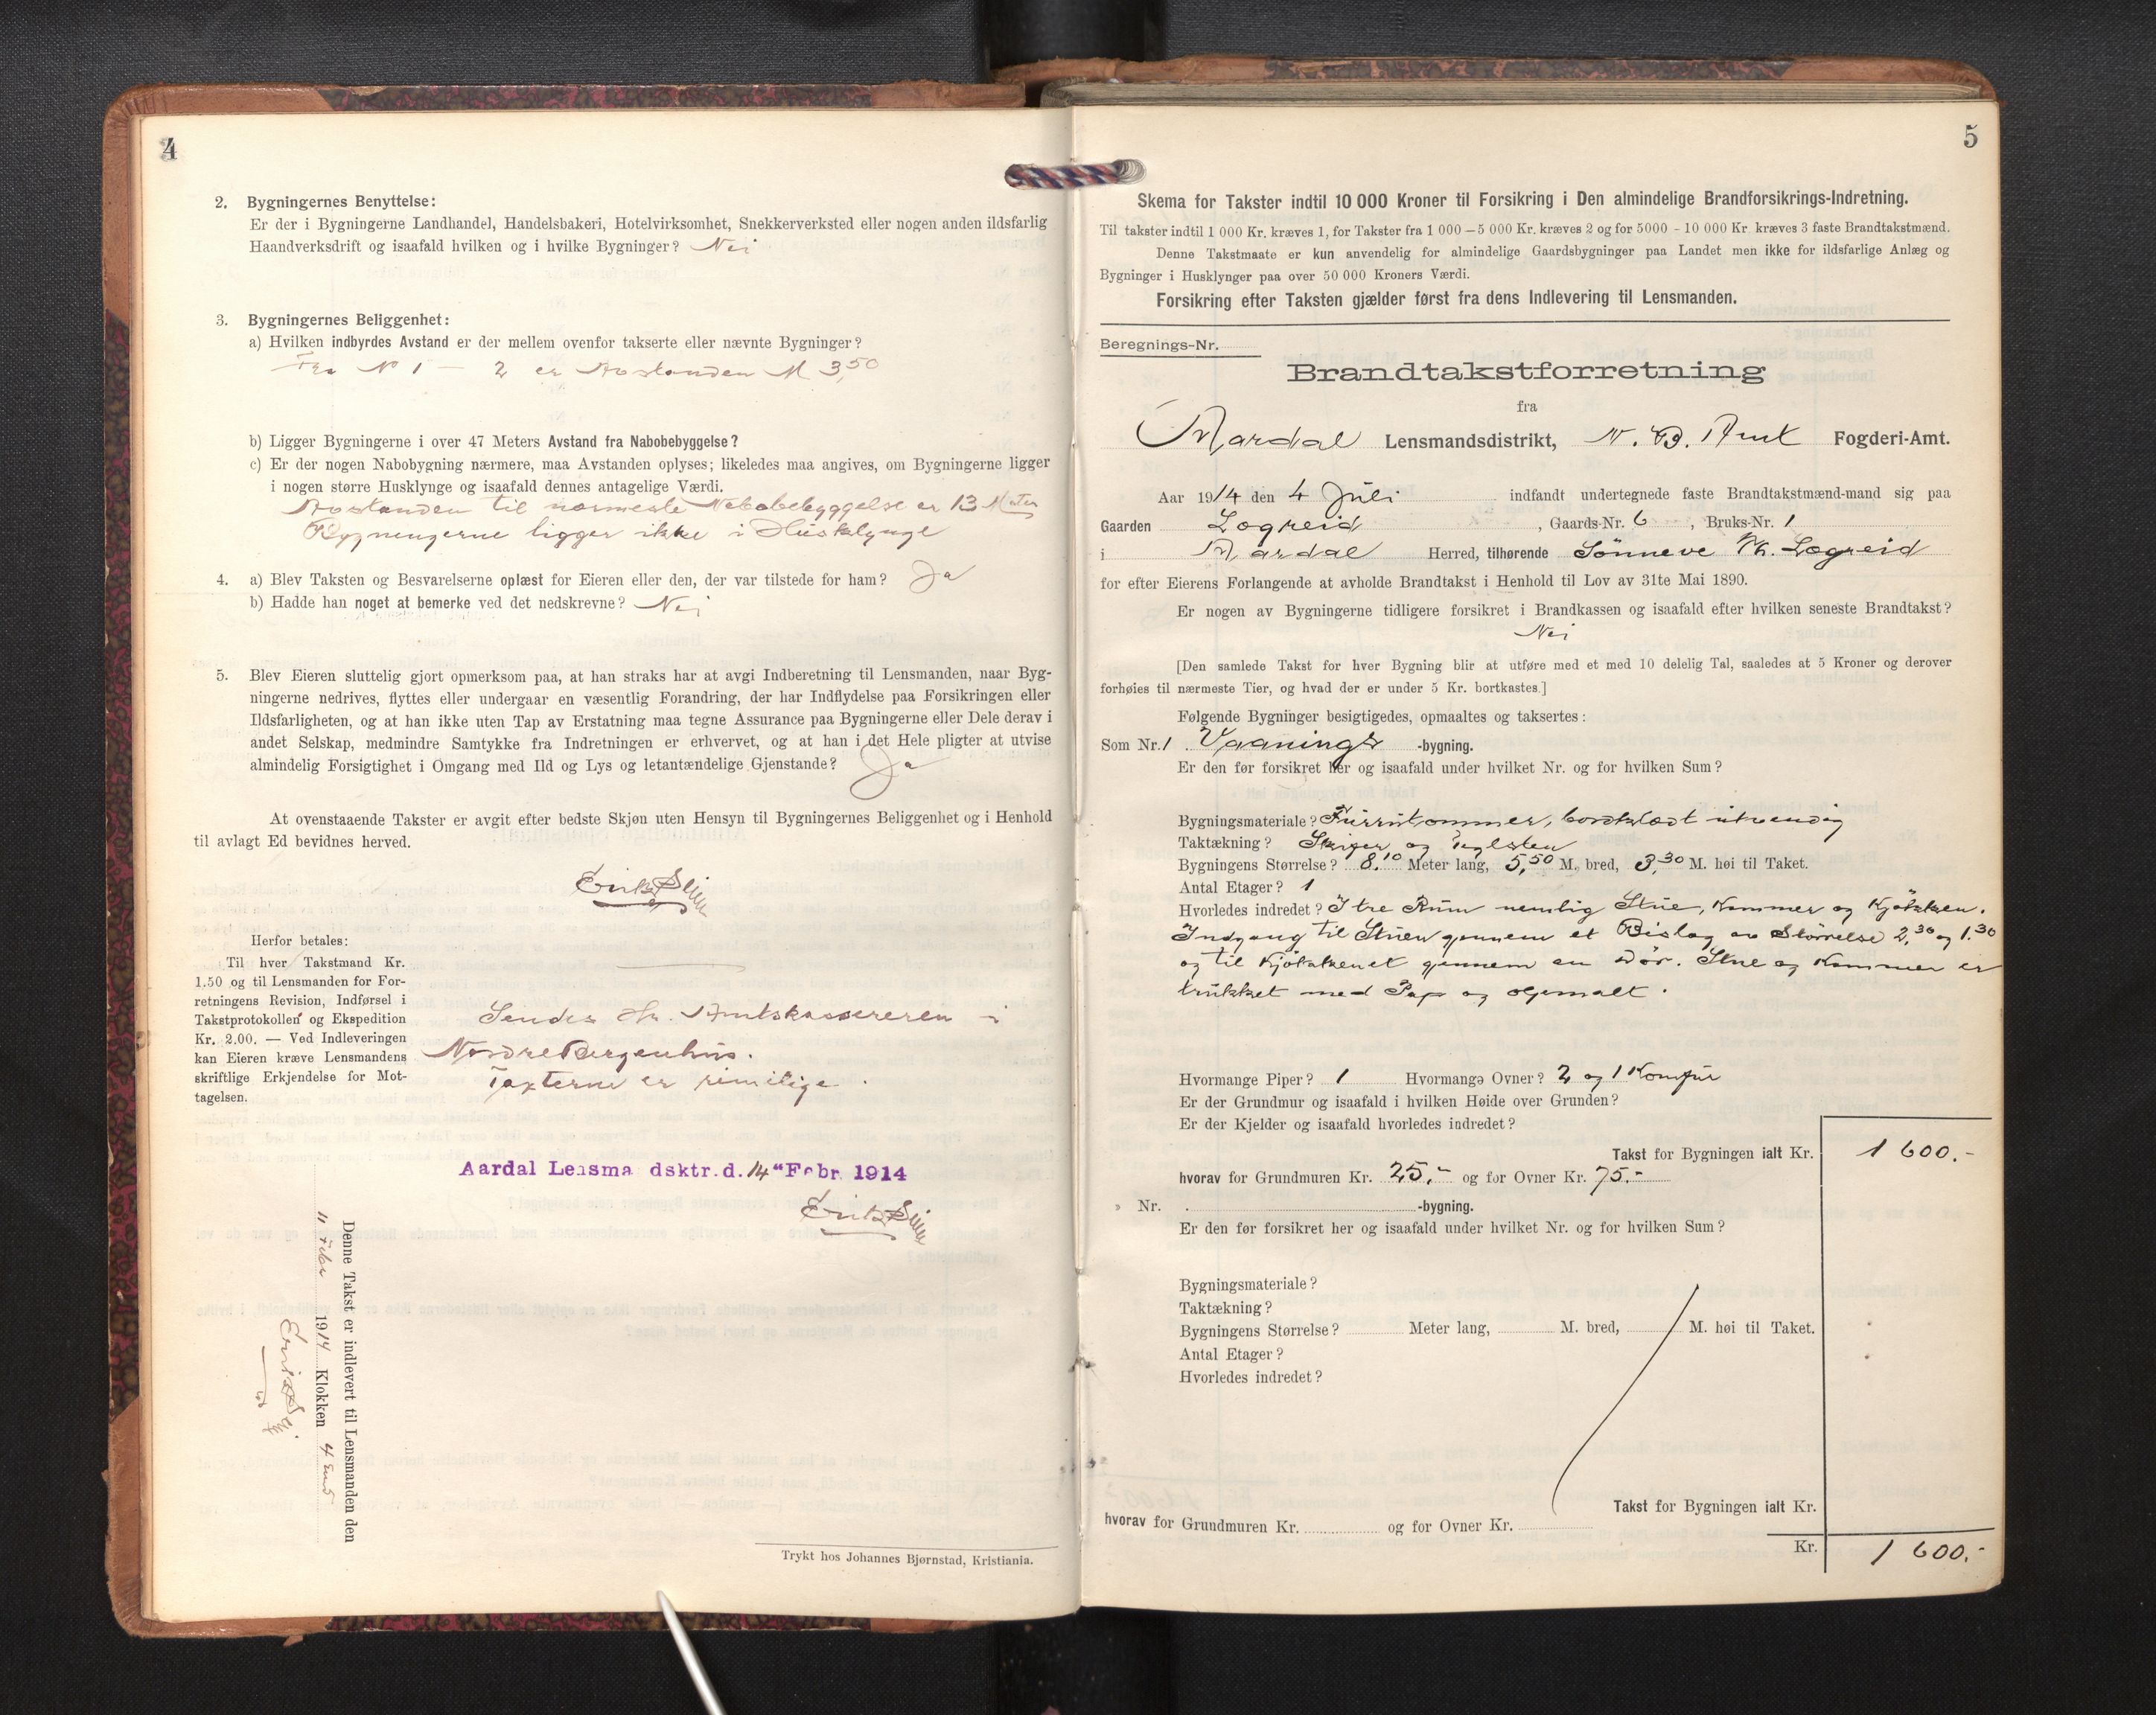 4
2. Bygningernes Benyttelse:
Er der i Bygningerne Landhandel, Handelsbakeri, Hotelvirksomhet, Snekkerverksted eller nogen anden ildsfarlig
Haandverksdrift og isaafald hvilken og i hvilke Bygninger? Nei
3. Bygningernes Beliggenhet:
a) Hvilken indbyrdes Avstand er der mellem ovenfor takserte eller nævnte Bygninger?
Fra No 1 — 2 er Avstanden M 3,50
b) Ligger Bygningerne i over 47 Meters Avstand fra Nabobebyggelse?
c) Er der nogen Nabobygning nærmere, maa Avstanden oplyses; likeledes maa angives, om Bygningerne ligger
i nogen større Husklynge og isaafald dennes antagelige Værdi.
Avstanden til nærmeste Nabobebyggelse er 13 Meter
Bygningerne ligger ikke i Husklynge
4. a) Blev Taksten og Besvarelserne oplæst for Eieren eller den, der var tilstede for ham? Ja
b) Hadde han noget at bemerke ved det nedskrevne? Nei
5. Blev Eieren sluttelig gjort opmerksom paa, at han straks har at avgi Indberetning til Lensmanden, naar Byg-
ningerne nedrives, flyttes eller undergaar en væsentlig Forandring, der har Indflydelse paa Forsikringen eller
Ildsfarligheten, og at han ikke uten Tap av Erstatning maa tegne Assurance paa Bygningerne eller Dele derav i
andet Selskap, medmindre Samtykke fra Indretningen er erhvervet, og at han i det Hele pligter at utvise
almindelig Forsigtighet i Omgang med Ild og Lys og letantændelige Gjenstande? Ja
At ovenstaaende Takster er avgit efter bedste Skjøn uten Hensyn til Bygningernes Beliggenhet og i Henhold
til avlagt Ed bevidnes herved.
Herfor betales:
Til hver Takstmand Kr.
1.50 og til Lensmanden for For-
retningens Revision, Indførsel i
Takstprotokollen og Ekspedition
Kr. 2.00. — Ved Indleveringen
kan Eieren kræve Lensmandens
skriftlige Erkjendelse for Mot-
tagelsen.
Sendes Hr. Amtskassereren i
Nordre Bergenhus.
Taxterne er rimelige.
Aardal Lensma dsktr. d. 14 " Febr. 1914
Denne Takst er indlevert til Lensmanden den
11 Febr 1914 Klokken 4 Em
Trykt hos Johannes Bjørnstad, Kristiania.
5
Skema for Takster indtil 10 000 Kroner til Forsikring i Den almindelige Brandforsikrings-Indretning.
Til takster indtil 1 000 Kr. kræves 1, for Takster fra 1 000 — 5 000 Kr. kræves 2 og for 5000 - 10 000 Kr. kræves 3 faste Brandtakstmænd.
Denne Takstmaate er kun anvendelig for almindelige Gaardsbygninger paa Landet men ikke for ildsfarlige Anlæg og
Bygninger i Husklynger paa over 50 000 Kroners Værdi.
Forsikring efter Taksten gjælder først fra dens Indlevering til Lensmanden.
Beregnings-Nr.
Brandtakstforretning
fra
Aardal Lensmandsdistrikt, N. B. Amt Fogderi-Amt.
Aar 1914 den 4 Juli indfandt undertegnede faste Brandtakstmænd-mand sig paa
Gaarden Lægreid, Gaards-Nr. 6, Bruks-Nr. 1
i Aardal Herred, tilhørende Sønneve Lægreid
for efter Eierens Forlangende at avholde Brandtakst i Henhold til Lov av 31te Mai 1890.
Er nogen av Bygningerne tidligere forsikret i Brandkassen og isaafald efter hvilken seneste Brandtakst?
Nei
[Den samlede Takst for hver Bygning blir at utføre med et med 10 delelig Tal, saaledes at 5 Kroner og derover
forhøies til nærmeste Tier, og hvad der er under 5 Kr. bortkastes.]
Følgende Bygninger besigtigedes, opmaaltes og taksertes:
Som Nr. 1. Vaanings -bygning.
Er den før forsikret her og isaafald under hvilket Nr. og for hvilken Sum?
Bygningsmateriale? Furutømmer, bordklædt utvendig
Taktækning? Skifer og Teglsten
Bygningens Størrelse? 8,10 Meter lang, 5,50 M. bred, 3,30 M. høi til Taket.
Antal Etager? 1
Hvorledes indredet? I tre Rum nemlig Stue, Kammer og Kjøkken.
Indgang til Stuen gjennem et Bislag av Størrelse 2,30 og 1.30
og til Kjøkkenet gjennem en Dør. Stue og Kammer er
trukket med Pap og oljemalt.
Hvormange Piper? 1 Hvormange Ovner? 2 og 1 Komfur
Er der Grundmur og isaafald i hvilken Høide over Grunden?
Er der Kjelder og isaafald hvorledes indredet?
Takst for Bygningen ialt Kr. 1 600.-
hvorav for Grundmuren Kr. 25.- og for Ovner Kr. 75.-
» Nr. -bygning.
Er den før forsikret her og isaafald under hvilket Nr. og for hvilken Sum?
Bygningsmateriale?
Taktækning?
Bygningens Størrelse? Meter lang, M. bred, M. høi til Taket.
Antal Etager?
Hvorledes indredet?
Takst for Bygningen ialt Kr.
hvorav for Grundmuren Kr. og for Ovner Kr.
Kr. 1 600.-